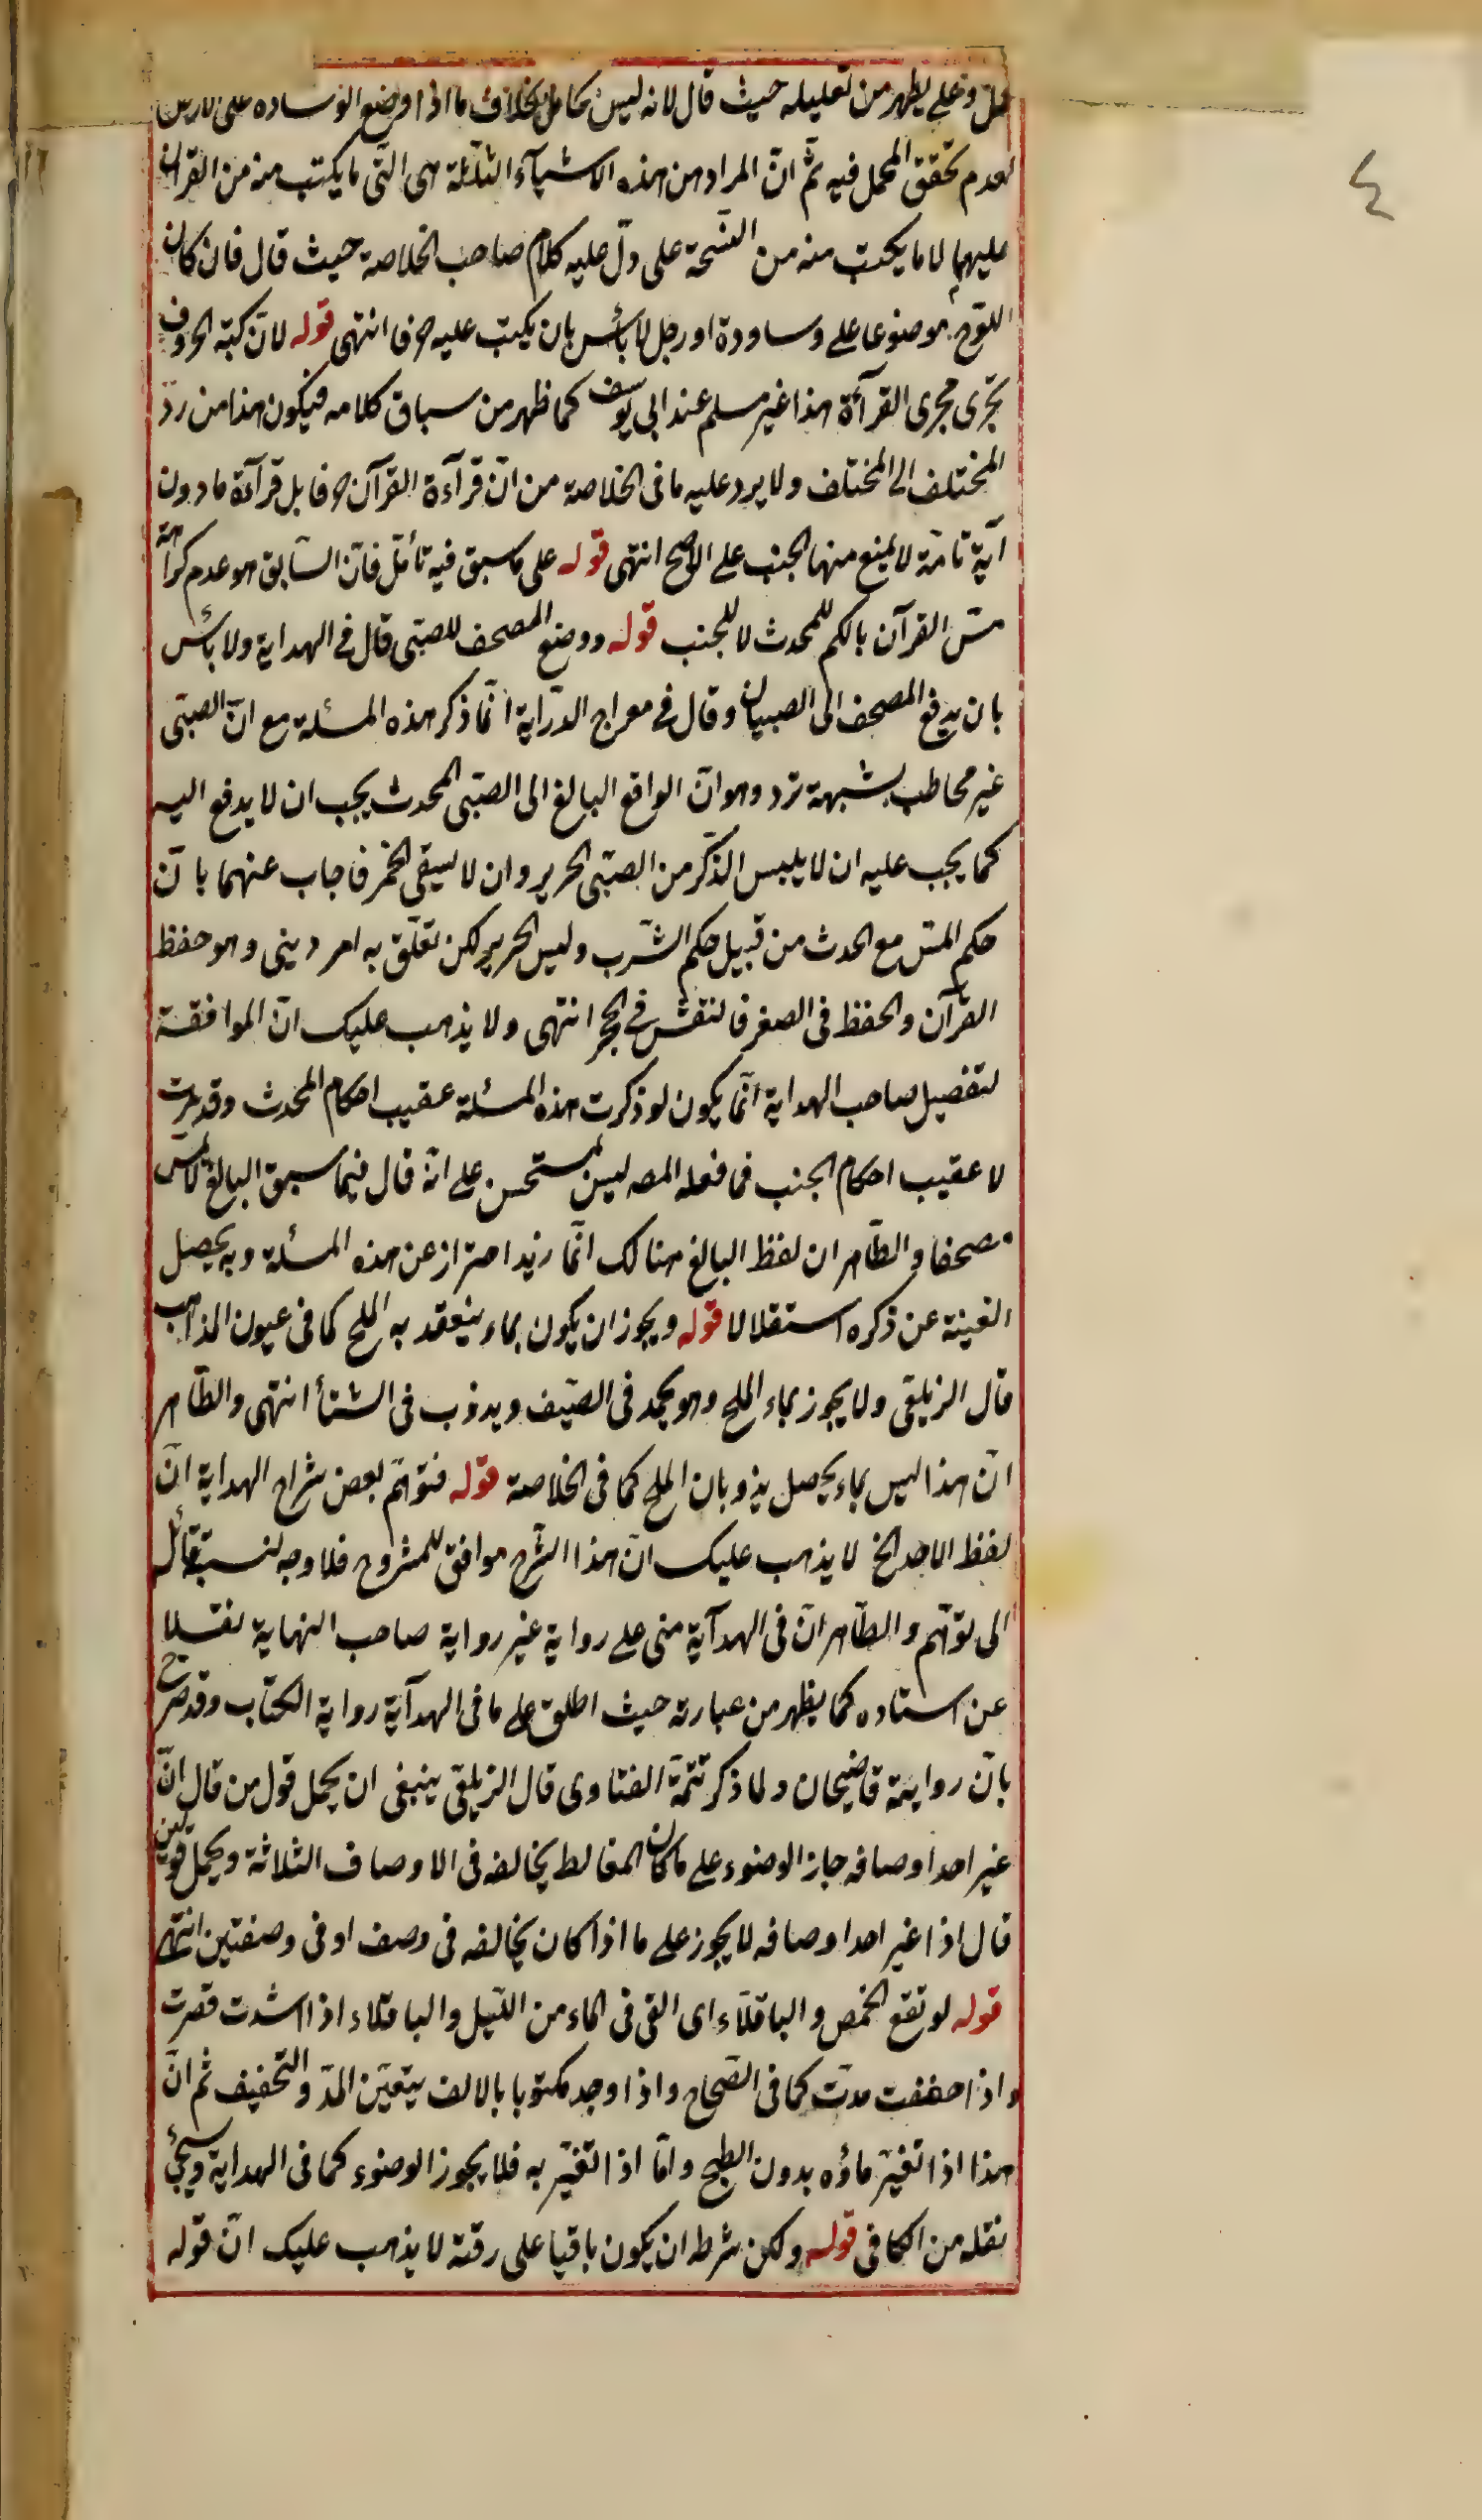 ٤
وعلى يظهر من تعليله حيث قال لانه ليس بحامل بخلاف ما اذا وضع الوساده على
لعدم تحقق المحمل فيه ثم انّ المراد من هذه الاشيآء الثلثة هى الّتى ما يكتب منه من القران
عليهما لا ما يكتب منه من النسخة على دلّ عليه كلام صاحب الخلاصة حيث قال فان كان
اللوح موضوعا على وساودة او رجل لا بأس بان يكتب عليه حرفا انتهى قوله لانّ كتبة الحروف
تجرى مجرى القرآءة هذا غير مسلم عند ابى يوسف كما ظهر من سباق كلامه فيكون هذا من ردّ
المختلف الى المختلف ولا يرد عليه ما فى الخلاصة من انّ قرآءة القرآن حرفا بل قرآءة ما دون
آية تامّة لا يمنع منها الجنب على الاصح انتهى قوله على ما سبق فيه تأمّل فانّ السّابق هو عدم كراهة
مسّ القرآن بالكم للمحدث لا للجنب قوله ووضع المصحف للصبّى قال فى الهداية ولا بأس
بان يدفع المصحف الى الصبيان وقال فى معراج الدّراية انّما ذكر هذه المسئلة مع انّ الصبّى
غير مخاطب بشبهة ترد وهو انّ الواقع البالغ الى الصبّى المحدث يجب ان لا يدفع اليه
كما يجب عليه ان لا يلبس الذّكر من الصبّى الحرير وان لا يسقى الخمر فاجاب عنهما بانّ
حكم المسّ مع الحدث من قبيل حكم الشّرب ولبس الحرير لكن تعلّق به امر دينى وهو حفظ
القرآن والحفظ فى الصغر فالنقش فى الحجر انتهى ولا يذهب عليك انّ الموافقة
لتفصيل صاحب الهداية انّما يكون لو ذكرت هذه المسئلة عقيب احكام المحدث وقد مرت
لا عقيب احكام الجنب فما فعله المصه ليس بمستحسن على انّه قال فيما سبق البالغ لا يمس
مصحفا والظّاهر ان لفظ البالغ هنالك انّما زيد احتراز عن هذه المسئلة وبه يحصل
الغينة عن ذكره استقلالا قوله ويجوز ان يكون بماء ينعقد به الملح كما فى عيون المذاهب
قال الزيلعى ولا يجوز بماء الملح وهو يجمد فى الصّيف ويذوب فى الشتأ انتهى والظّاهر
انّ هذا ليس بماء يحصل بذوبان الملح كما فى الخلاصة قوله فتوهّم بعض شراح الهداية انّ
لفظ الاحد الخ لا يذهب عليك انّ هذا الشّرح موافق للمشروح فلا وجه لنسبة قائله
الى توهّم والظّاهر انّ فى الهدآية منى على رواية غير رواية صاحب النهاية نقلا
عن استاده كما يظهر من عبارته حيث اطلق على ما فى الهدآية رواية الكتاب وقد صرح
بانّ رواية قاضيخان ولما ذكر تتمّة الفتاوى قال الزيلعى ينبغى ان يحمل قول من قال انّ
غير احد اوصافه جاز الوضوء على ما كان المخالط يخالفه فى الاوصاف الثلاثة ويحمل قول من
قال اذا غير احد اوصافه لا يجوز على ما اذا كان يخالفه فى وصف او فى وصفتين انتهى
قوله لو تقع الحمص والباقلاء اى القى فى الماء من اللّيل والباقلاء اذا شدت قصرت
واذا خففت مدّت كما فى الصّحاح واذا وجد مكتوبا بالالف يتعيّن المدّ والتخفيف ثم انّ
هذا اذا تغيّر ماؤه بدون الطبح وامّا اذا تغيّر به فلا يجوز الوضوء كما فى الهداية وسيجئ
نقله من الكافى قوله ولكن شرط ان يكون باقيا على رقته لا يذهب عليك انّ قوله